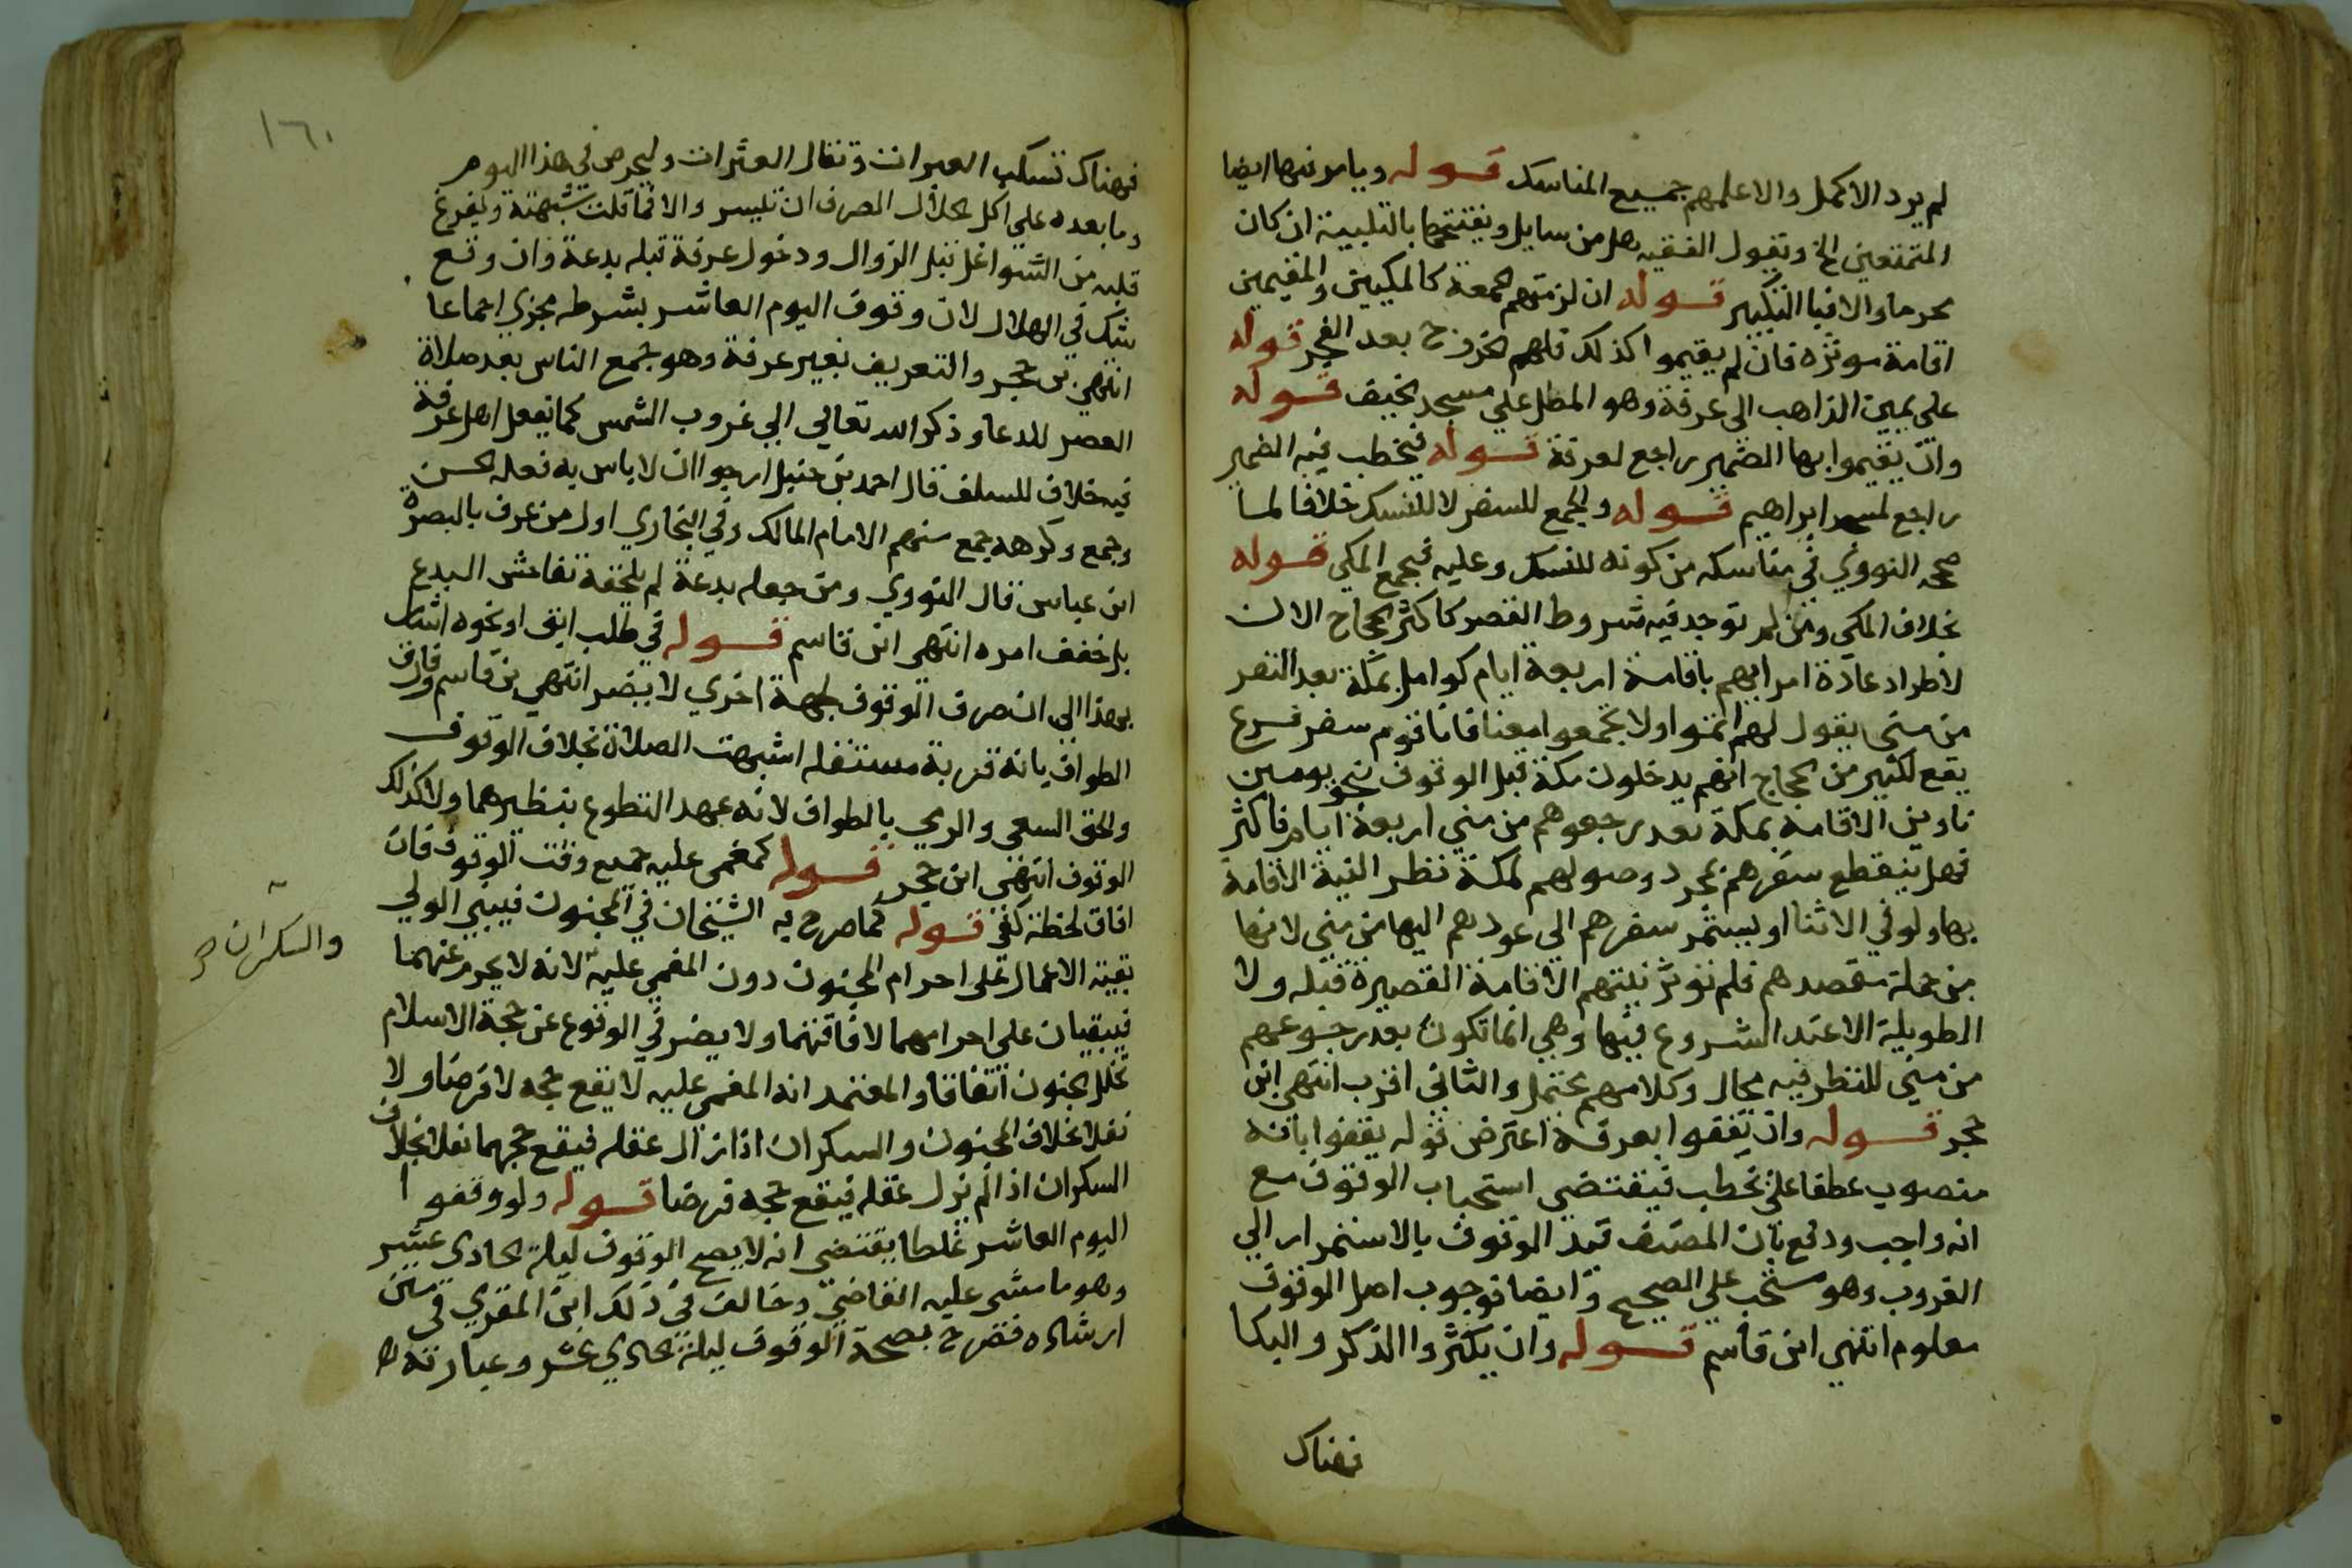 لم يرد الاكمل والا علمهم جميع المناسك قوله ويامر فيها ايضا
المتمتعين الخ ويقول الفقيه هل من سايل ويفتتحها بالتلبية ان كان
محرما والا فبا التكبير قوله ان لزمتهم الجمعة كالمكيين والمقيمين
اقامة موثره فان لم يقيموا كذلك فلهم الخروج بعد الفجر قوله
على يمين الذاهب الى عرفة وهو المطل على مسجد الخيف قوله
وان يقيموا بها الضمير راجع لعرفة قوله فيخطب فيه الضمير
راجع لمسجد ابراهيم قوله والجمع للسفر لا للنسك خلافا لما
صححه النووي في مناسكه من كونه للنسك وعليه فيجمع المكي قوله
بخلاف المكي ومن لم توجد فيه شروط القصر كاكثر الحجاج الان
لاطراد عادة امرايهم باقامة اربعة ايام كوامل بمكة بعد النفر
من منى يقول لهم اتموا ولا تجمعوا معنا فانا قوم سفر فرع
يقع لكثير من الحجاج انهم يدخلون مكة قبل الوقوف بنحو يومين
ناوين الاقامة بمكة بعد رجعوهم من مني اربعة ايام فاكثر
فهل ينقطع سفرهم بمجرد وصولهم لمكة نظر النية الاقامة
بها ولو في الاثنا او يستمر سفرهم الى عودهم اليها من منى لانها
من جملة مقصدهم فلم توثر نيتهم الاقامة القصيرة قبله ولا
الطويلة الا عند الشروع فيها وهي انما تكون بعد رجوعهم
من مني للنظر فيه مجال وكلامهم محتمل والثاني اقرب انتهى ابن
حجر قوله وان يقفوا بعرفة اعترض قوله يقفوا بانه
منصوب عطفا على يخطب فيقتضي استحباب الوقوف مع
انه واجب ودفع بان المصنف قيد الوقوف بالاستمرار الي
الغروب وهو مستحب على الصحيح وايضا فوجوب اصل الوقوف
معلوم انتهي ابن قاسم قوله وان يكثروا الذكر والبكا
فهناك
١٦٠
فهناك تسكب العبرات وتقال العثرات وليحرص في هذا اليوم
وما بعده على اكل الحلال الصرف ان تيسر والا فما قلت شبهته وليفرغ
قلبه من الشواغل قبل الزوال ودخول عرفة قبله بدعة وان وقع
شك في الهلال لان وقوف اليوم العاشر بشرطه مجزي اجماعا
انتهي بن حجر والتعريف بغير عرفة وهو جمع الناس بعد صلاة
العصر للدعا وذكر الله تعالي الي غروب الشمس كما يفعل اهل عرفة
فيه خلاف للسلف قال احمد بن حنبل ارجوا ان لا باس به فعله الحسن
وجمع وكرهه جمع منهم الامام المالك وفي البخاري اول من عرف بالبصرة
ابن عباس قال النووي ومن جعله بدعة لم يلحقه بفاحش البدع
بل خفف امره انتهي ابن قاسم قوله في طلب ابق او نحوه اشار
بهذا الى ان صرف الوقوف لجهة اخري لا يضر انتهي بن قاسم وفارق
الطواف بانه قربة مستقله اشبهت الصلاة بخلاف الوقوف
والحق السعي والرمي بالطواف لانه عهد التطوع بنظيرهما ولا كذلك
الوقوف انتهى ابن حجر قوله كمغمى عليه جميع وقت الوقوف فان
افاق لحظة كفى قوله كما صرح به الشيخان في المجنون فيبني الولي
بقية الاعمال على احرام المجنون دون المغمي عليه لانه لا يحرم عنهما
والسكران صح
فيبقيان على احرامهما لافاقتهما ولا يضر في الوقوع عن حجة الاسلام
تخلل الجنون اتفاقا والمعتمد انه المغمى عليه لا يقع حجه لا فرضا ولا
نفلا بخلاف المجنون والسكران اذا زال عقله فيقع حجهما نفلا بخلاف
السكران اذا لم يزل عقله فيقع حجه فرضا قوله ولو وقفوا
اليوم العاشر غلطا يقتضي انه لا يصح الوقوف ليلة الحادي عشر
وهو ما مشى عليه القاضي وخالف في ذلك ابن المقري في متن
ارشاده فصرح بصحة الوقوف ليلة الحادي عشر وعبارته